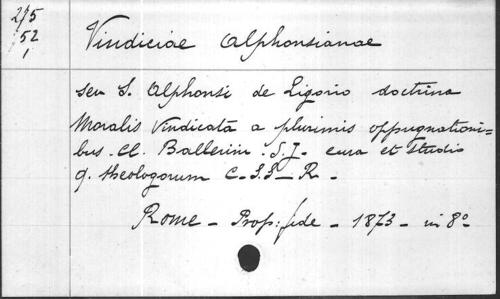 275
52
1
Vindiciae Alphonsianae
seu S. Alphonsi de Ligorio doctrina
Moralis vindicata a plurimis oppugnationi=
bus Cl. Ballerini S.J. cura et studio
q. theologorum C. S.S. R.
Rome - Prop: fide - 1873 - in 8º